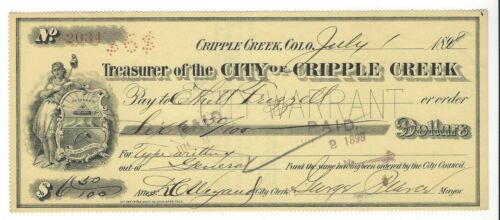 No 2034 $6$
CRIPPLE CREEK, COLO. July 1 1898
Treasurer of the CITY OF CRIPPLE CREEK
Pay to Ethel Frizzell or order
WARRANT
Six 50/100 Dollars
PAID PAID
2 1898
For Typewriting
out of General Fund the same having been ordered by the City Council.
$ 6 50/100 Attest City Clerk. George Pierce Mayor